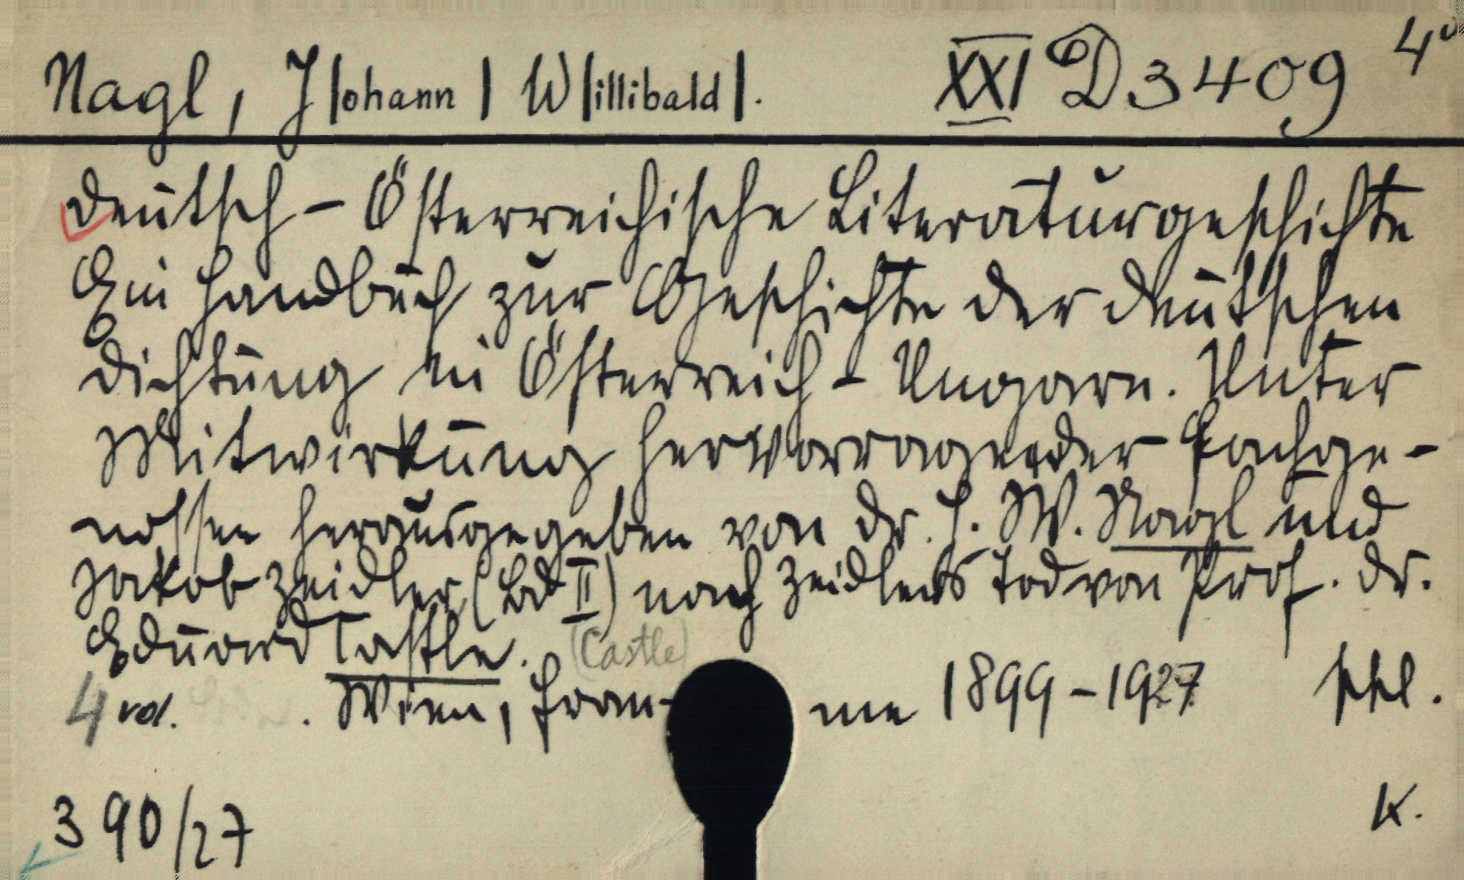 Nagl, J|ohann| W|illibald|. XXI D 3409 4°
Deutsch-Österreichische Literaturgeschichte
Ein Handbuch zur Geschichte der deutschen
Dichtung in Österreich-Ungarn. Unter
Mitwirkung hervorragender Fachge-
nossen herausgegeben von Dr. J. W. Nagl und
Jakob Zeidler (Bd II) nach Zeidlers Tod von Prof. Dr.
Eduard Castle. (Castle)
4 vol. . Wien, Fromme 1899-1927
390/27 K.